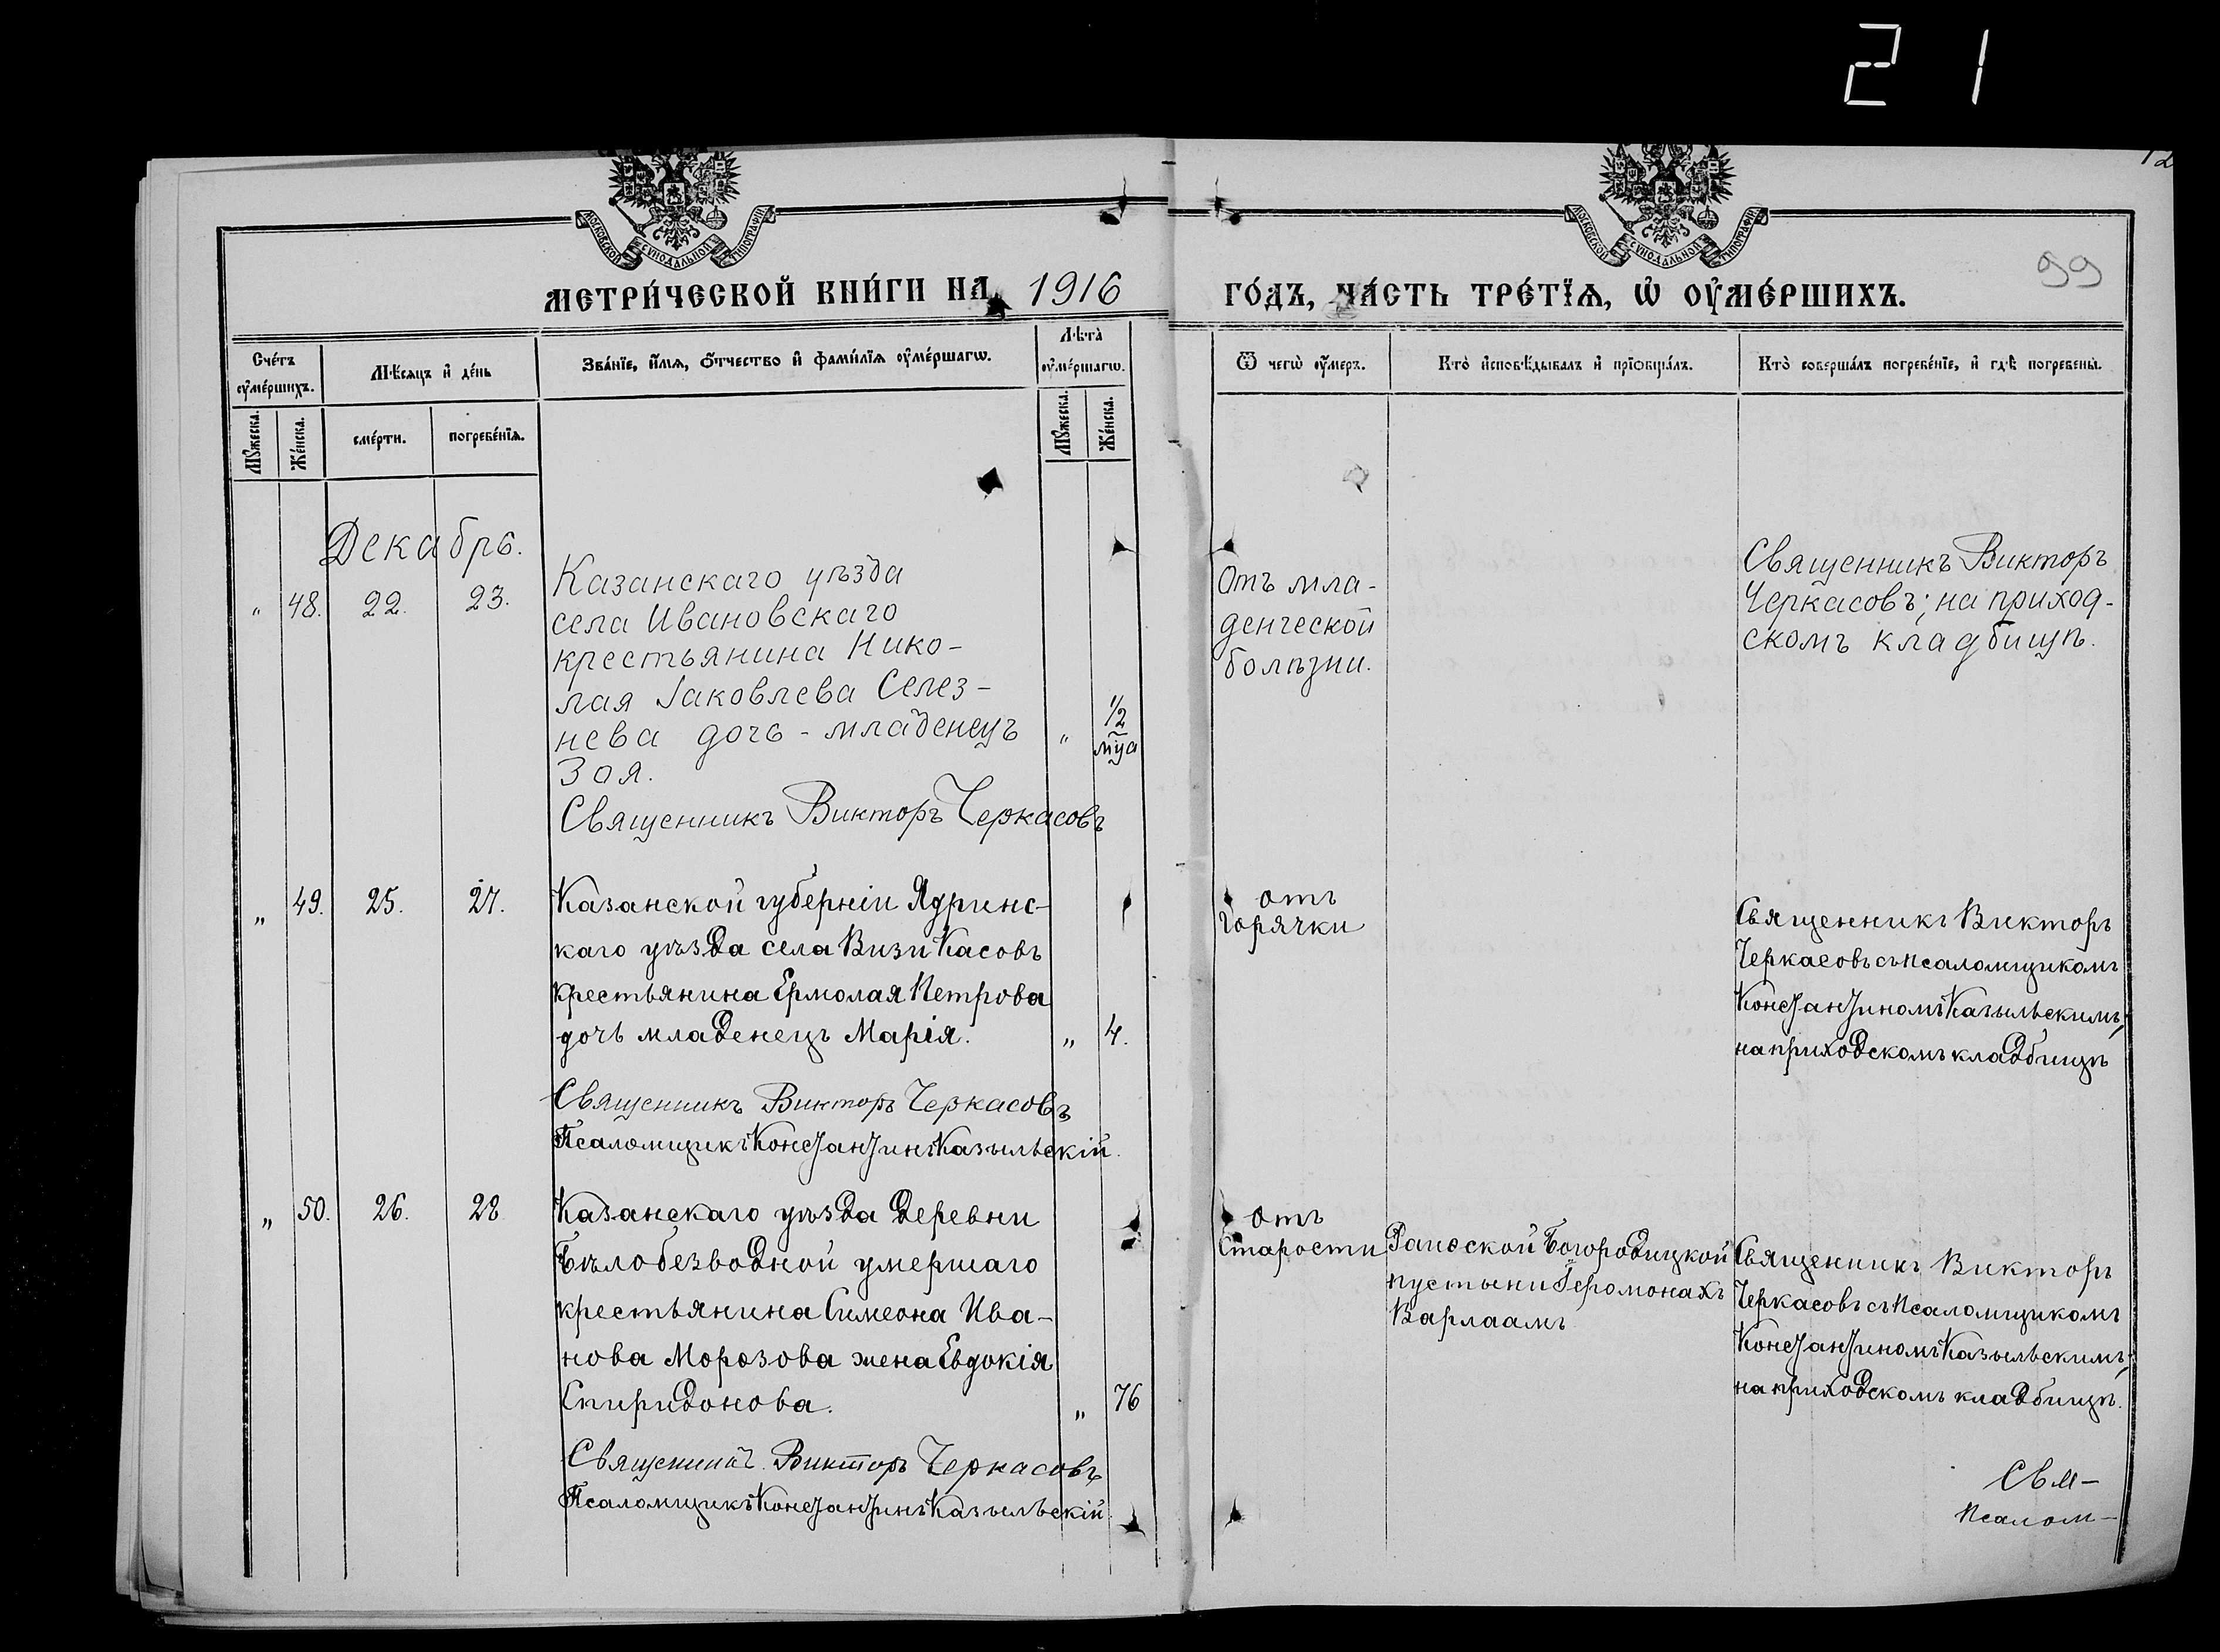 21
12
МОСКОВСКОЙ СѴНОДАЛЬНОЙ ТИПОГРАФІИ
МОСКОВСКОЙ СѴНОДАЛЬНОЙ ТИПОГРАФІИ
99
МЕТРИ́ЧЕСКОЙ КНИ́ГИ НА 1916 ГО́ДЪ, ЧА́СТЬ ТРЕ́ТЇѦ, Ѡ҆ ОУ҆МЕ́РШИХЪ.
Сче́тъ
оу҆ме́ршихъ.
Мꙋжеска.
Же́нска.
Мѣ́сѧцъ и҆ де́нь
сме́рти.
погребе́нїѧ.
Зва́нїе, и҆́мѧ, ѻ҆́тчество и҆ фами́лїѧ оу҆ме́ршагѡ.
Лѣ́та
оу҆ме́ршагѡ.
Мꙋжеска.
Же́нска.
Ѿ чегѡ̀ оу҆́меръ.
Кто̀ и҆сповѣ́дывалъ и҆ прїѻбща́лъ.
Кто̀ соверша́лъ погребе́нїе, и҆ гдѣ̀ погребены̀.
Декабрь.
" 48. 22. 23.
Казанскаго уѣзда
села Ивановскаго
крестьянина Нико-
лая Іаковлева Селез-
нева дочь - младенецъ
Зоя.
" 1/2
мца
Священникъ Викторъ Черкасовъ
Отъ мла-
денческой
болѣзни.
Священникъ Викторъ
Черкасовъ; на приход-
скомъ кладбищѣ.
„ 49. 25. 27.
Казанской губерніи Ядринс-
каго уѣзда села Визи Касовъ
крестьянина Ермолая Петрова
дочь младенецъ Марія.
„ 4.
Священникъ Викторъ Черкасовъ
Псаломщикъ Константинъ Казыльскій.
отъ
горячки
Священникъ Викторъ
Черкасовъ съ псаломщикомъ
Константиномъ Казыльскимъ;
на приходскомъ кладбищѣ
„ 50. 26. 28
Казанскаго уѣзда деревни
Бѣлобезводной умершаго
крестьянина Симеона Ива-
нова Морозова жена Евдокія
Спиридонова.
„ 76
Священникъ Викторъ Черкасовъ
Псаломщикъ Константинъ Казыльскій
отъ
старости
Раиѳской Богородицкой
пустыни Іеромонахъ
Варлаамъ
Священникъ Викторъ
Черкасовъ съ псаломщикомъ
Константиномъ Казыльскимъ;
на приходскомъ кладбищѣ.
Свя-
Псалом-